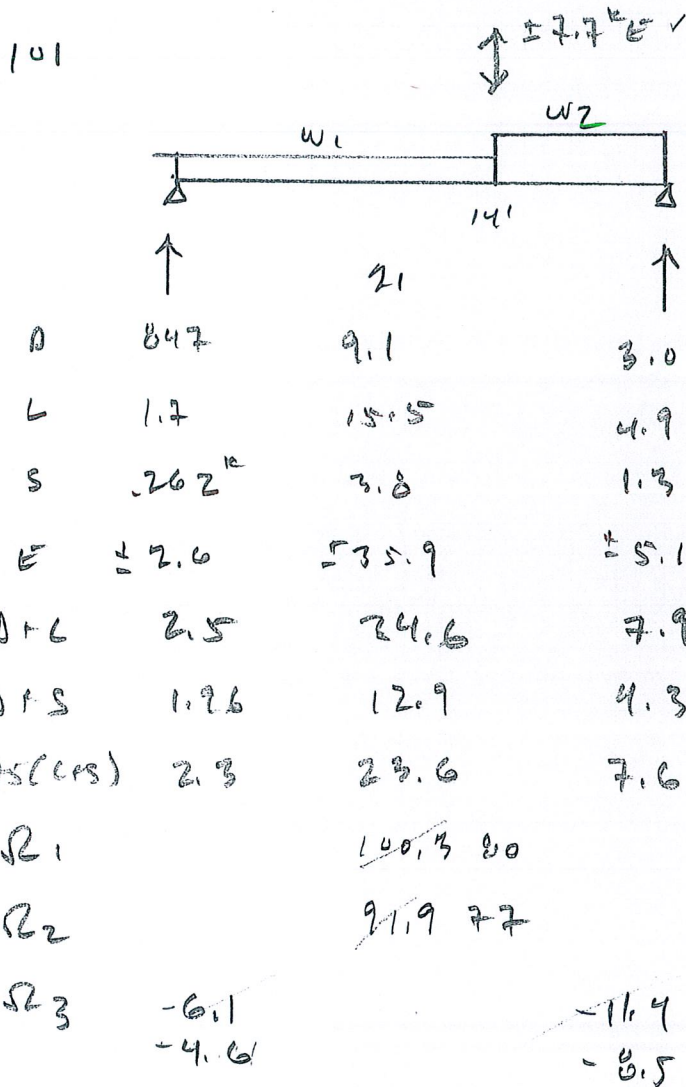 101
± 7.7ᵏ E ✓
W1 W2
14'
21
D 847 9.1 3.0
L 1.7 15.5 4.9
S .262ᵏ 3.8 1.3
E ± 2.6 ± 35.9 ± 5.1
D+L 2.5 24.6 7.9
D+S 1.96 12.9 4.3
5(L+S) 2.3 23.6 7.6
Ω1 100.3 80
Ω2 91.9 77
Ω3 -6.1 -11.4
-4.6 -8.5